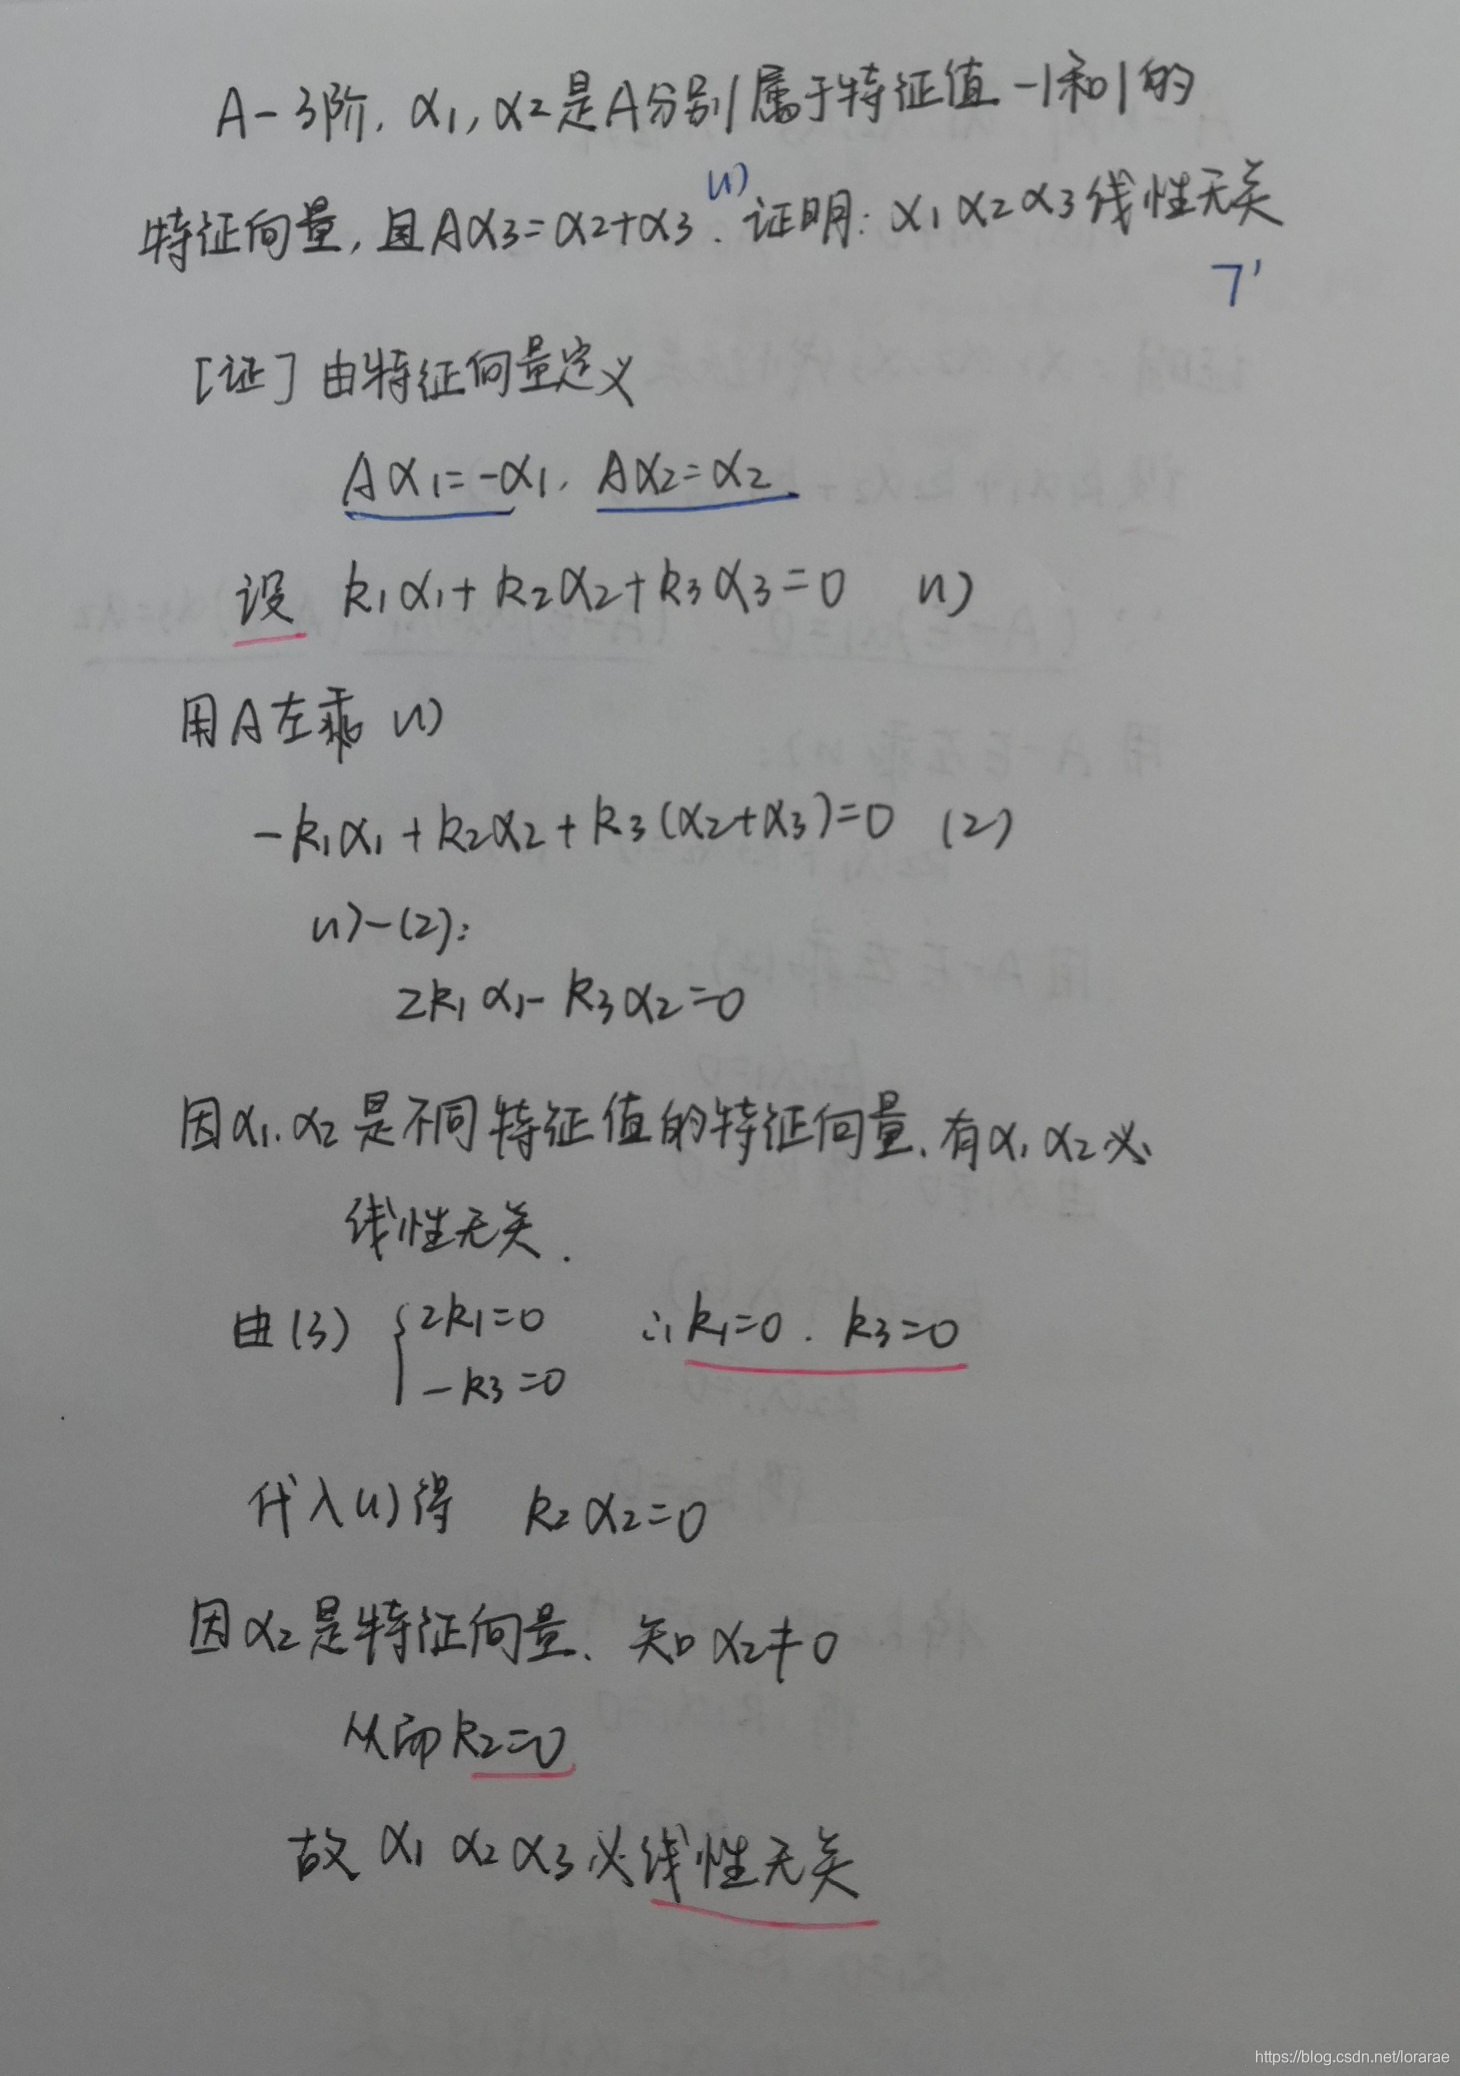 A-3阶, α1, α2是A分别属于特征值 -1和1的
特征向量, 且Aα3=α2+α3. (1) 证明: α1 α2 α3线性无关
7'
[证] 由特征向量定义
Aα1=-α1, Aα2=α2
设 k1α1+k2α2+k3α3=0 (1)
用A左乘 (1)
-k1α1+k2α2+k3(α2+α3)=0 (2)
(1)-(2):
2k1α1-k3α2=0
因α1, α2是不同特征值的特征向量, 有α1 α2必
线性无关.
由(3) { 2k1=0 ∴k1=0. k3=0
-k3=0
代入(1)得 k2α2=0
因α2是特征向量, 知α2≠0
从而k2=0
故 α1 α2 α3必线性无关
https://blog.csdn.net/lorarae